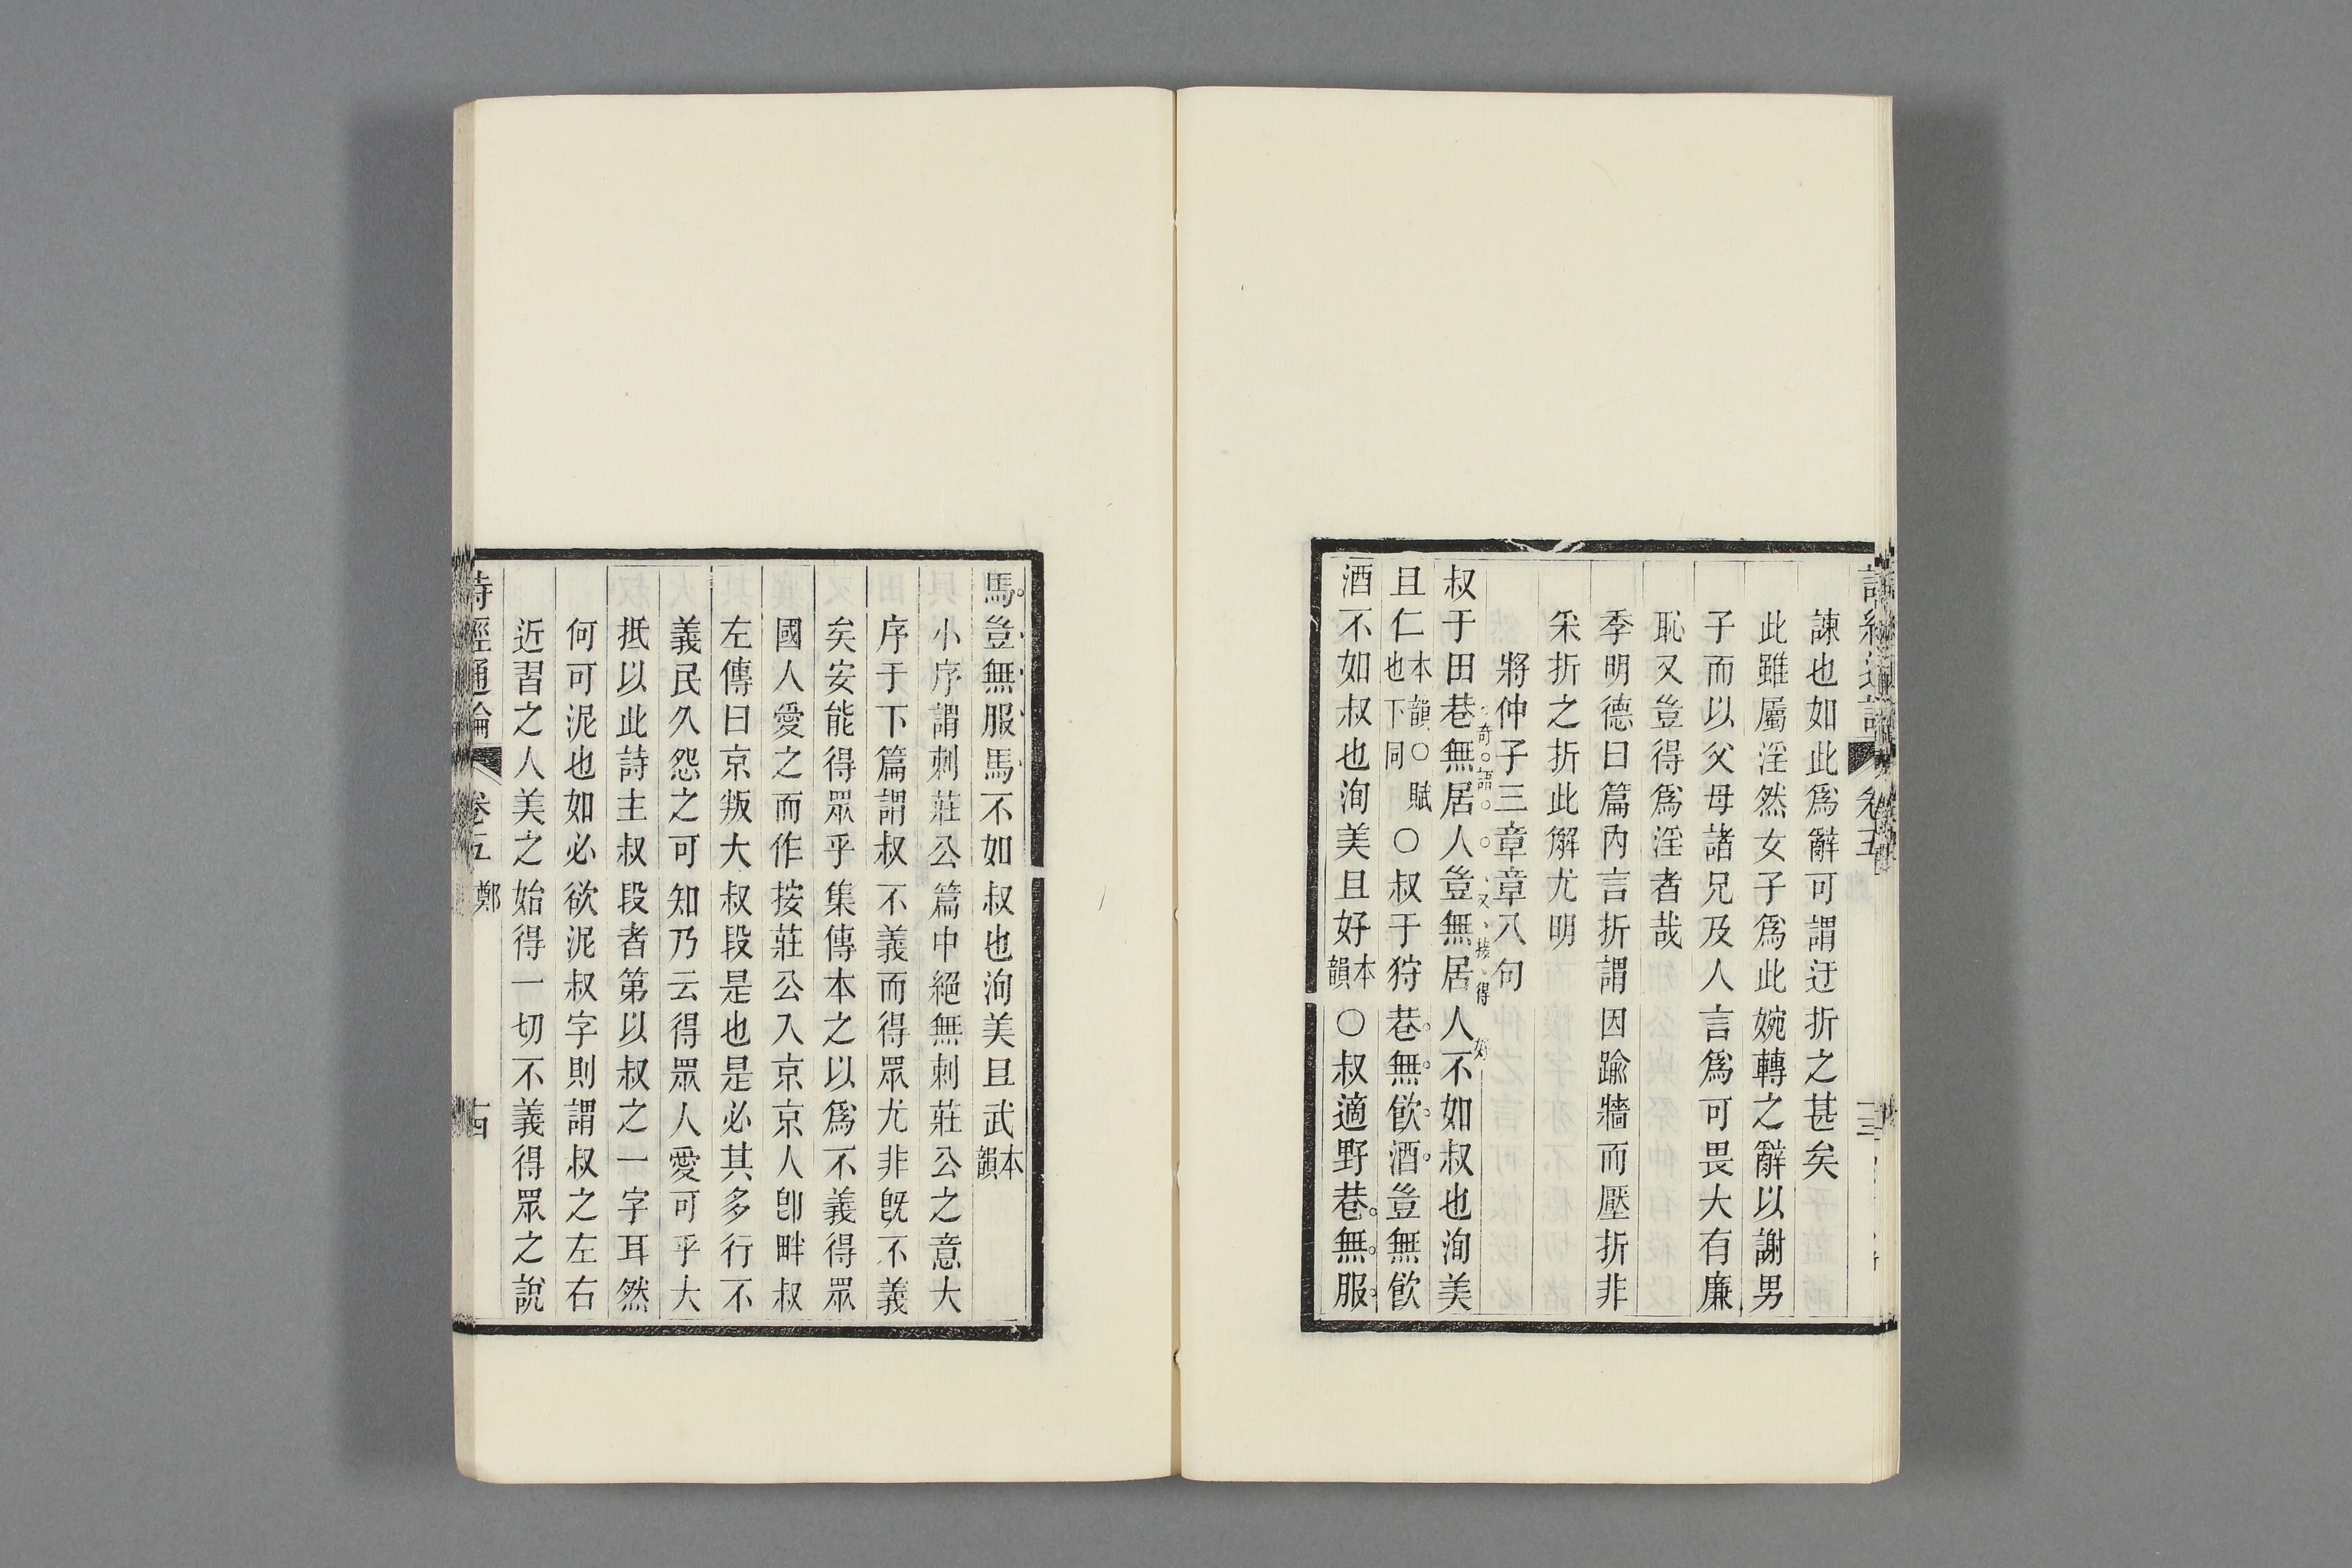 諫也如此爲辭可謂迂折之甚矣
此雖屬淫然女子爲此婉轉之辭以謝男
子而以父母諸兄及人言爲可畏大有廉
恥又豈得爲淫者哉
季明德曰篇內言折謂因踰牆而壓折非
采折之折此解尤明
將仲子三章章八句
叔于田巷無居人豈無居人不如叔也洵美
奇語又接得好
且仁本韻○賦也下同○叔于狩巷無飮酒豈無飮
酒不如叔也洵美且好本韻○叔適野巷無服
馬豈無服馬不如叔也洵美且武本韻
小序謂刺莊公篇中絕無刺莊公之意大
序于下篇謂叔不義而得眾尤非旣不義
矣安能得眾乎集傳本之以爲不義得眾
國人愛之而作按莊公入京京人卽畔叔
左傳曰京叛大叔段是也是必其多行不
義民久怨之可知乃云得眾人愛可乎大
抵以此詩主叔段者第以叔之一字耳然
何可泥也如必欲泥叔字則謂叔之左右
近習之人美之始得一切不義得眾之說
詩經通論 卷五 鄭 古